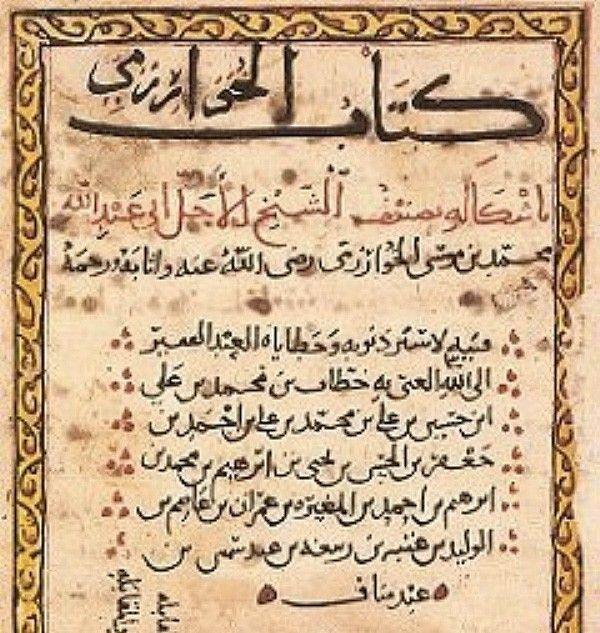 كتاب الخوارزمي
باشكاله تصنيف الشيخ الأجل أبي عبد الله
محمد بن موسى الخوارزمي رضي الله عنه وأثابه ورحمه
لأسير ذنوبه وخطاياه العبد الفقير
الى الله الغني به خطاب بن محمد بن علي
ابن حسين بن علي بن محمد بن علي بن احمد بن
جعفر بن الحسين بن يحيى بن ابرهيم بن محمد بن
ابرهيم بن احمد بن المغيره بن عمران بن عاصم بن
الوليد بن عتبه بن ربيعه بن عبد شمس بن
عبد مناف